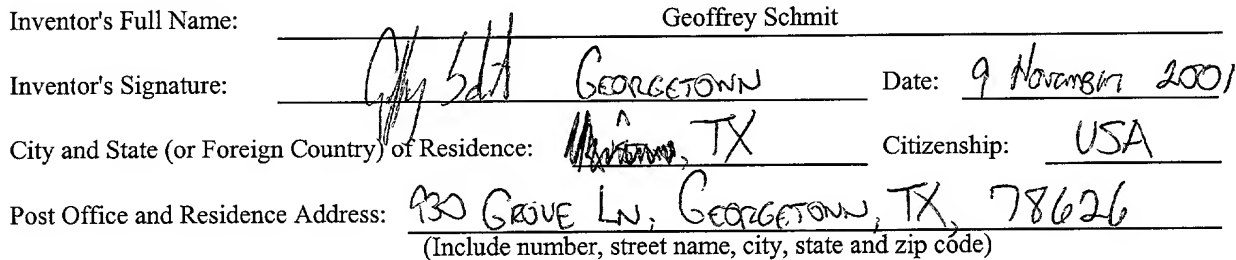 Inventor's Full Name: Geoffrey Schmit
Inventor's Signature: GEORGETOWN Date: 9 November 2001
City and State (or Foreign Country) of Residence: ^ , TX Citizenship: USA
Post Office and Residence Address: 930 GROVE LN, GEORGETOWN, TX, 78626
(Include number, street name, city, state and zip code)